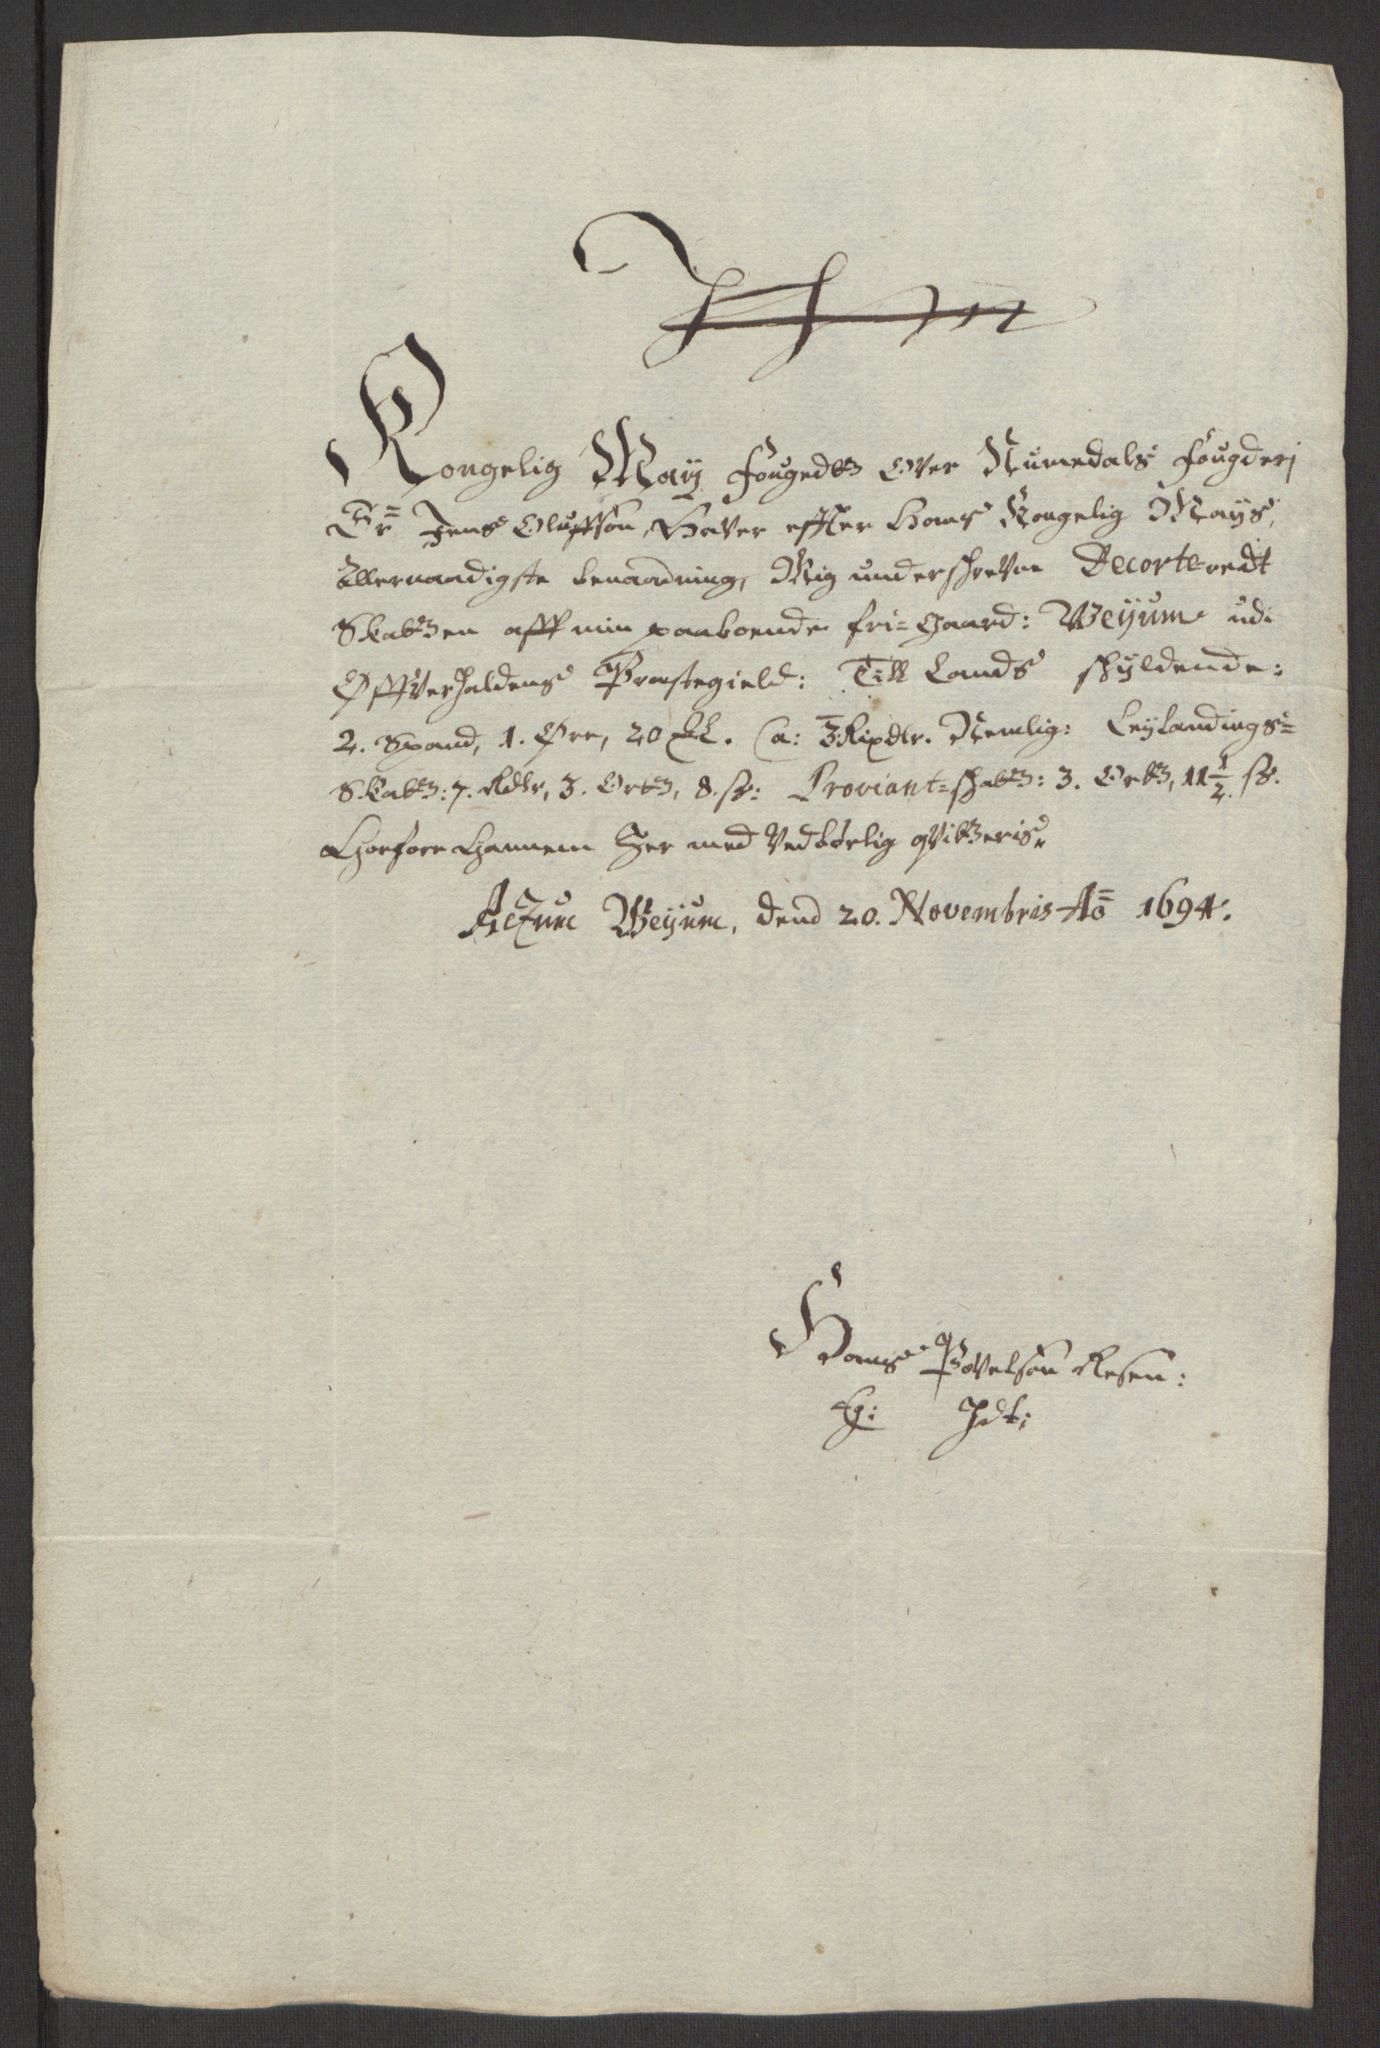 Kongelig May Fougedt Over Numedals Fougderj
Sr Jens Oluffsøn, Haver effter Hans Kongelig Mayts
Allernaadigste benaadning, Mig underschrevne Decorteredt
Skatten aff min paaboende fri-Gaard: Weyum udi
Offverhaldens Præstegield: Till Lands schyldende:
2. Spand, 1. Øre, 20 Nemlig: Leylandings-
Skatt: 7. Rdlr, 3. Ort, 8. sz: Proviant-schatt: 3. Ort, 11½. sz.
Hvorfore Hannem Her med Vedbørlig qvitteris.
Actum Weyum, dend 20. Novembris Ao 1694.
Hans Povelsøn Resen:
Eg: Hdt: